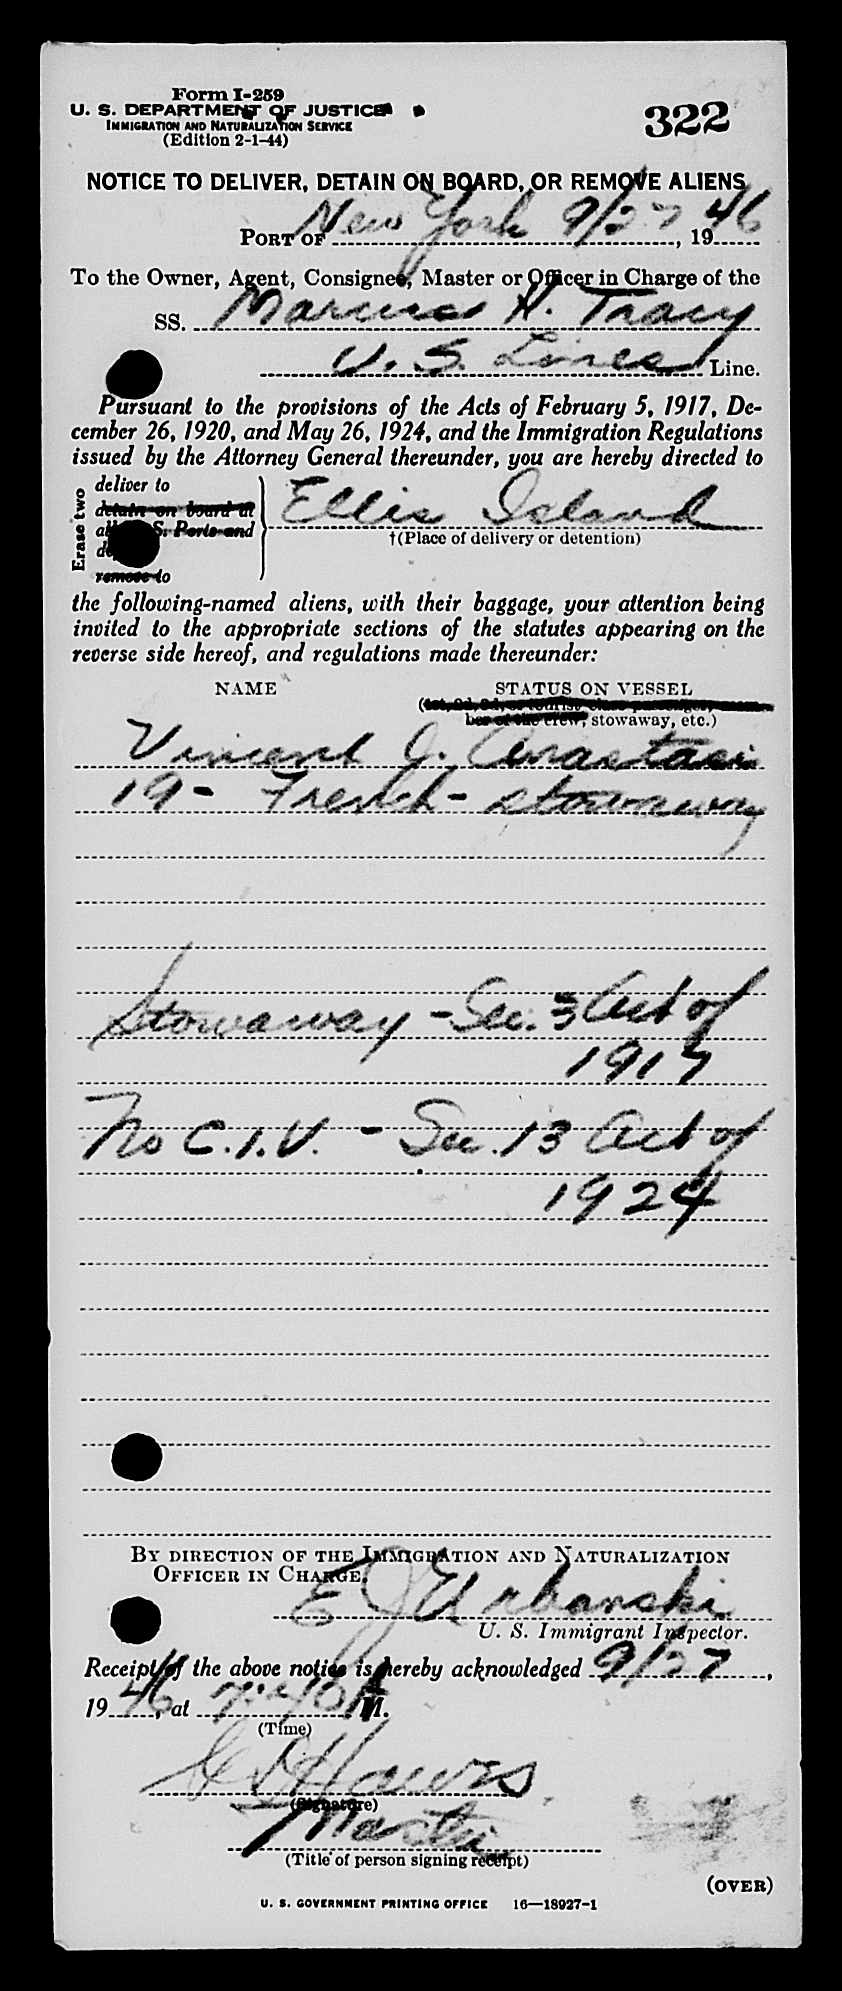 Form I-259
U. S. DEPARTMENT OF JUSTICE
IMMIGRATION AND NATURALIZATION SERVICE
(Edition 2-1-44)
322
NOTICE TO DELIVER, DETAIN ON BOARD, OR REMOVE ALIENS
PORT OF New York 9/27, 1946
To the Owner, Agent, Consignee, Master or Officer in Charge of the
SS. Marcus H. Tracy
U. S. Lines Line.
Pursuant to the provisions of the Acts of February 5, 1917, De-
cember 26, 1920, and May 26, 1924, and the Immigration Regulations
issued by the Attorney General thereunder, you are hereby directed to
Erase two
deliver to
detain on board at
S. Ports and
remove to
Ellis Island
†(Place of delivery or detention)
the following-named aliens, with their baggage, your attention being
invited to the appropriate sections of the statutes appearing on the
reverse side hereof, and regulations made thereunder:
NAME STATUS ON VESSEL
(1st, 2d, 3d, or tourist class passenger, mem-
ber of the crew, stowaway, etc.)
Vincent J. Anastasi
19 - French - stowaway
Stowaway - Sec. 3 Act of
1917
No C.I.V. - Sec. 13 Act of
1924
BY DIRECTION OF THE IMMIGRATION AND NATURALIZATION
OFFICER IN CHARGE.
E J Urbanski
U. S. Immigrant Inspector.
Receipt of the above notice is hereby acknowledged 9/27,
1946, at M.
(Time)
Hawes
(Signature)
Master
(Title of person signing receipt)
(OVER)
U. S. GOVERNMENT PRINTING OFFICE 16—18927-1